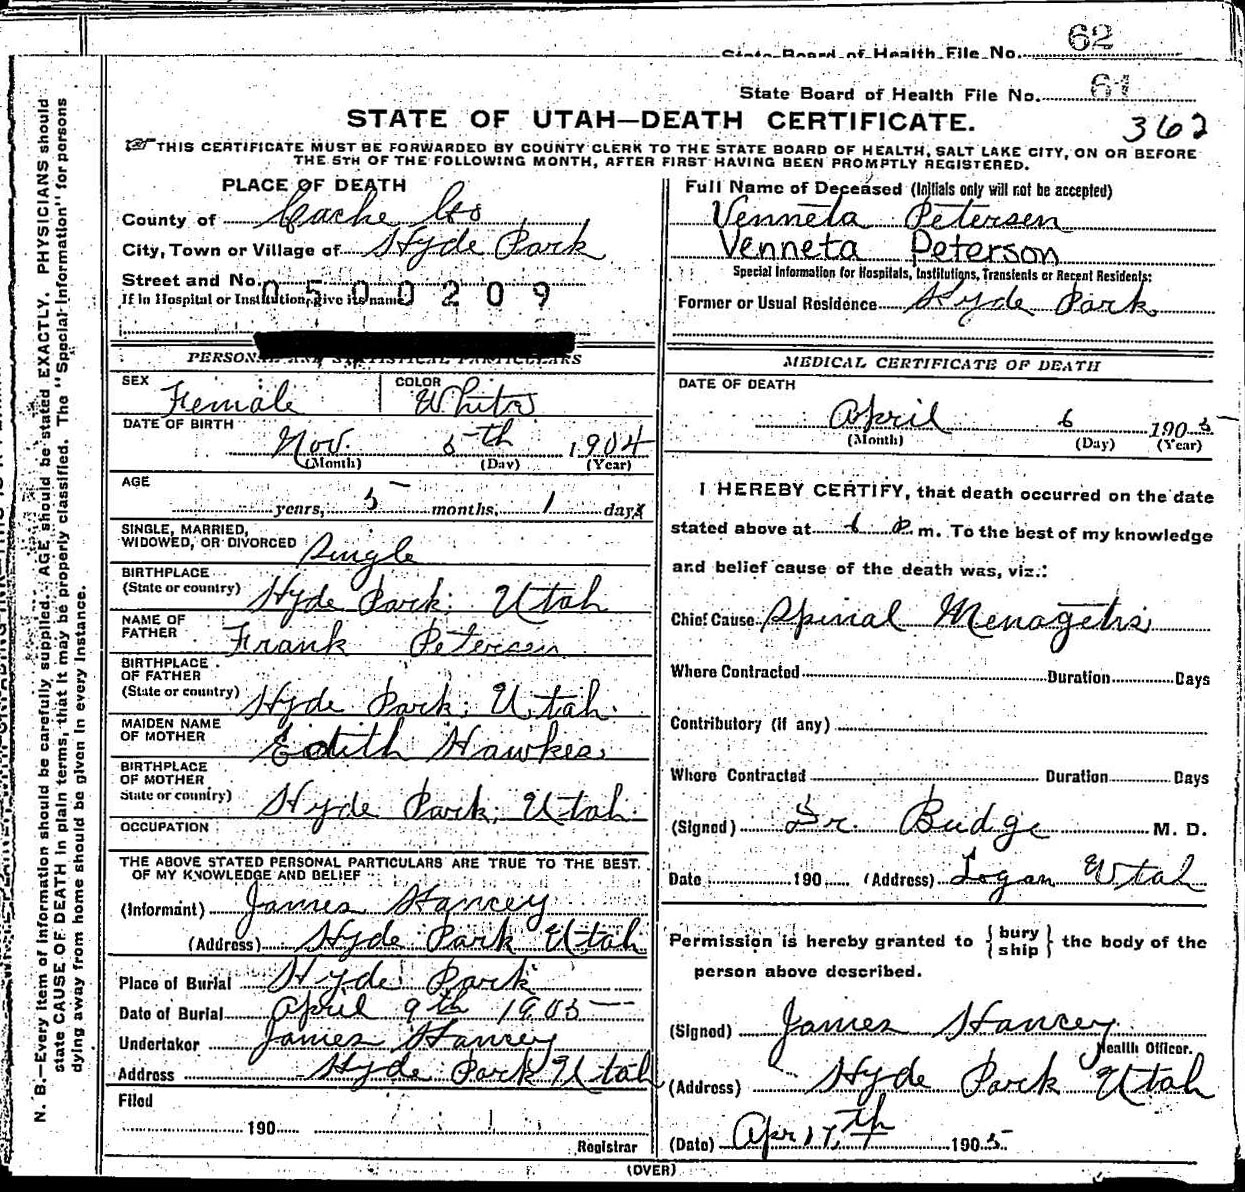 State Board of Health File No. 62
State Board of Health File No. 61
STATE OF UTAH—DEATH CERTIFICATE.
362
THIS CERTIFICATE MUST BE FORWARDED BY COUNTY CLERK TO THE STATE BOARD OF HEALTH, SALT LAKE CITY, ON OR BEFORE
THE 5TH OF THE FOLLOWING MONTH, AFTER FIRST HAVING BEEN PROMPTLY REGISTERED.
PLACE OF DEATH
County of Cache Co
City, Town or Village of Hyde Park
Street and No.
If in Hospital or Institution, give its name
0500209
PERSONAL AND STATISTICAL PARTICULARS
SEX Female
COLOR White
DATE OF BIRTH
Nov. 5th 1904
(Month) (Day) (Year)
AGE
years, 5 months, 1 days
SINGLE, MARRIED,
WIDOWED, OR DIVORCED Single
BIRTHPLACE
(State or country) Hyde Park, Utah
NAME OF
FATHER Frank Petersen
BIRTHPLACE
OF FATHER
(State or country) Hyde Park, Utah.
MAIDEN NAME
OF MOTHER Edith Hawkes
BIRTHPLACE
OF MOTHER
State or country) Hyde Park, Utah.
OCCUPATION
THE ABOVE STATED PERSONAL PARTICULARS ARE TRUE TO THE BEST
OF MY KNOWLEDGE AND BELIEF
(Informant) James Hancey
(Address) Hyde Park Utah
Place of Burial Hyde Park
Date of Burial April 9th 1905
Undertaker James Hancey
Address Hyde Park Utah
Filed
190
Registrar
Full Name of Deceased (Initials only will not be accepted)
Venneta Petersen
Venneta Peterson
Special Information for Hospitals, Institutions, Transients or Recent Residents:
Former or Usual Residence Hyde Park
MEDICAL CERTIFICATE OF DEATH
DATE OF DEATH
April 6 1905
(Month) (Day) (Year)
I HEREBY CERTIFY, that death occurred on the date
stated above at 6 P. m. To the best of my knowledge
and belief cause of the death was, viz.:
Chief Cause Spinal Menagetis
Where Contracted Duration Days
Contributory (if any)
Where Contracted Duration Days
(Signed) Dr. Budge M. D.
Date 190 (Address) Logan Utah
Permission is hereby granted to { bury ship } the body of the
person above described.
(Signed) James Hancey
Health Officer.
(Address) Hyde Park Utah
(Date) Apr 17th 1905
(OVER)
N. B.—Every item of information should be carefully supplied. AGE should be stated EXACTLY. PHYSICIANS should
state CAUSE OF DEATH in plain terms, that it may be properly classified. The "Special Information" for persons
dying away from home should be given in every instance.